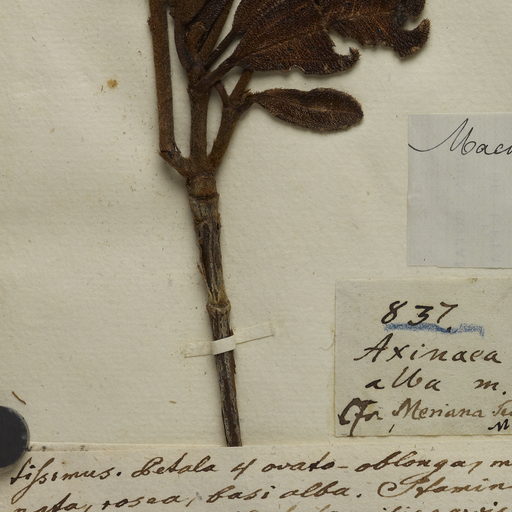 Mac
837.
Axinaea
alba m.
Meriana
M
tissimus. Petala 4 ovato-oblonga, m
nata, rosea, basi alba. Stamin